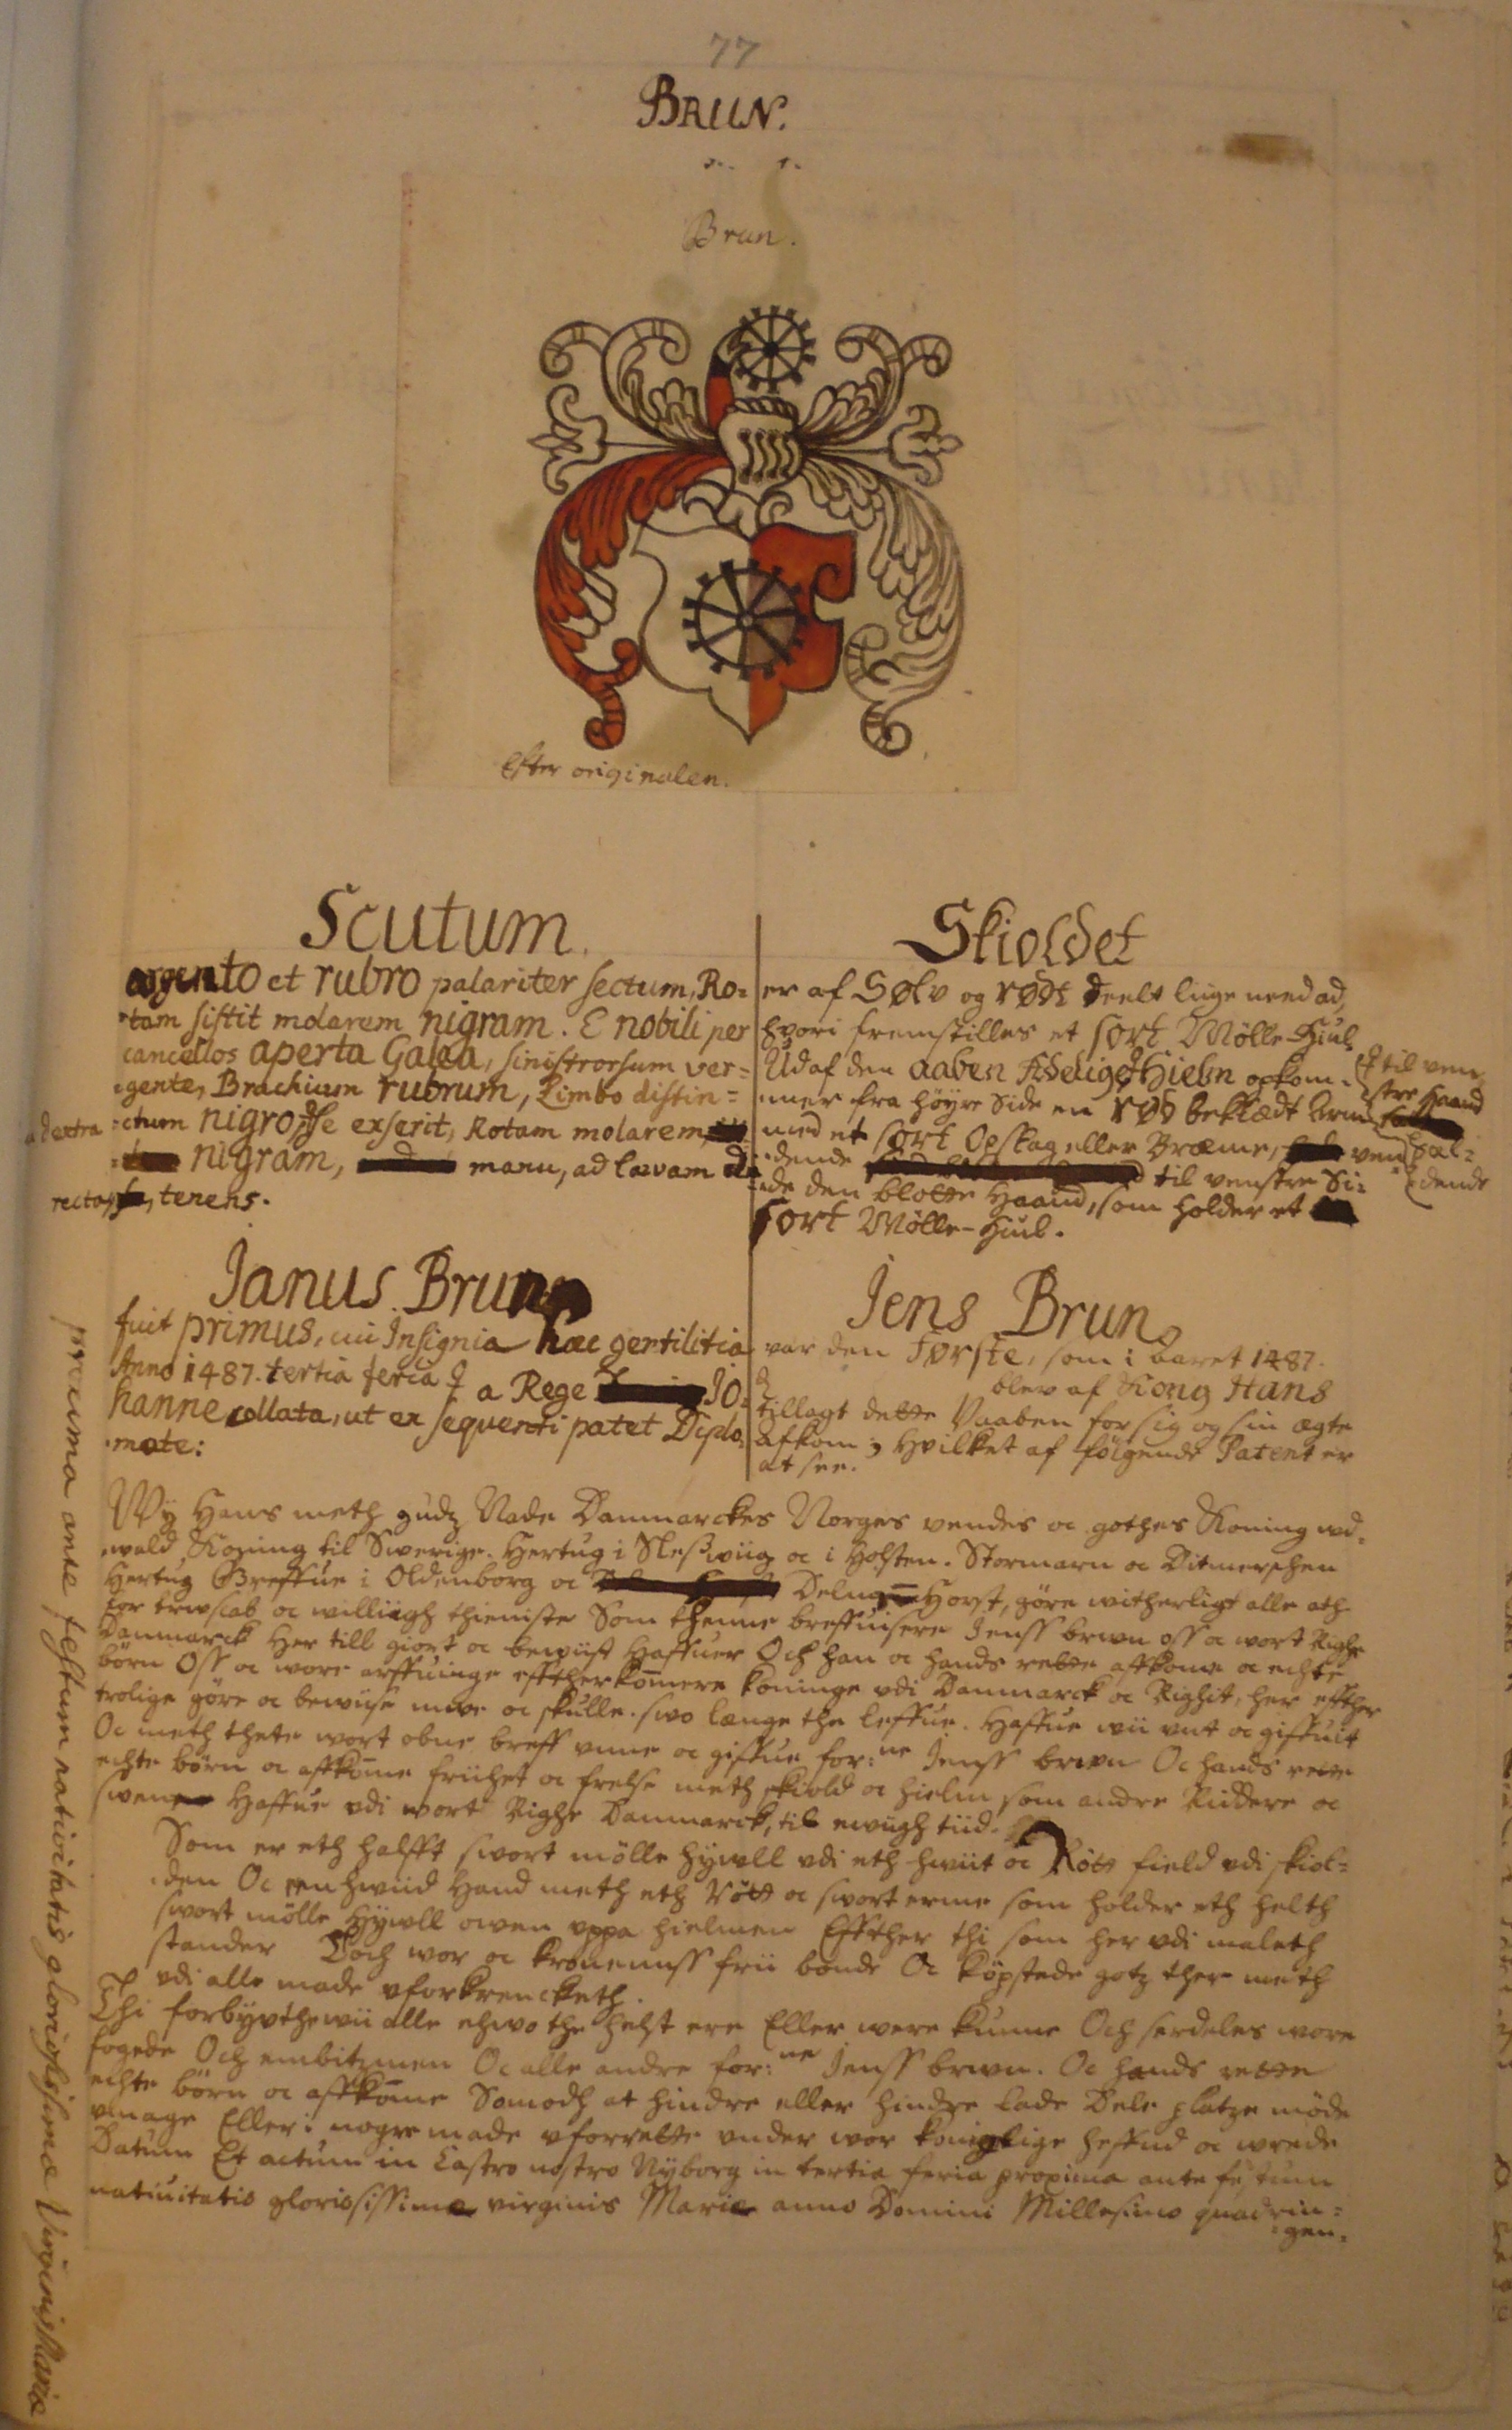 77
BRUN.
Brun.
Efter originalen.
Scutum
argento et rubro palariter sectum, Ro=
=tam sistit molarem nigram. E nobili per
cancellos aperta Galea, sinistrorsum ver=
=gente, Brachium rubrum, Limbo distin=
=ctum nigro, exserit, Rotam molarem
a dextra
nigram, manu, ad lævam
recta, tenens.
Skioldet
er af Sølv og rødt deelt liige need ad,
hvori fremstilles et sort Mølle-Hiul.
Udaf den aaben Adelige Hielm opkom=
=mer fra høyre Side en rød beklædt Arm
med et sort Opslag eller Bræme,
til venstre Si=
=de den blotte Haand, som holder et
sort Mølle-Hiul.
til ven
stre Haand
=dende
Janus Brun
fuit primus, cui Insignia hæc gentilitia
Anno 1487. tertia feria a Rege Jo=
hanne collata, ut ex sequenti patet Diplo=
=mate:
proxima ante festum nativitatis gloriosissimæ Virginis Mariæ
Jens Brun
var den Første, som i Aaret 1487.
blev af Kong Hans
tillagt dette Vaaben for sig og sin ægte
Afkom; Hvilket af følgende Patent er
at see.
Wy Hans meth gudz Nade Danmarckes Norges vendes oc gothes Koning wd=
=wald Koning til Swerige. Hertug i Sleßwiig oc i Holsten. Stormarn oc Ditmerschen
Hertug Greffue i Oldenborg oc Delmenhorst, göre witherligt alle ath
for trwscab oc williigh thieniste Som thenne breffuisere Jenss brwn oss oc wort Righe
Danmarck Her till giort oc bewiist Haffuer Och han oc hands rette affkome oc echte
börn Oss oc wore arffuinge effttherkom̄ere koninge vdi Danmarck oc Righit, her effther
trolige göre oc bewiise mwe oc skulle. swo længe the leffue. Haffue wii vnt oc giffuit
Oc meth thete wort obne breff vnne oc giffue for:ne Jenss brwn Oc hands rette
echte börn oc affkom̄e friihet oc frelse meth skiold oc hielm som andre Riddere oc
swene Haffue vdi wort Righe Danmarck, til ewiigh tiid.
Som er eth halfft swort mölle hywll vdi eth hwiit oc Röth field vdi skiol=
=den Oc een hwiid Hand meth eth Röth oc swort erme som holder eth helth
swort mölle Hywll owen vppa hielmen Effther thi som her vdi maleth
stander Doch wor oc kronenss frii bonde Oc köpstede gotz ther meth
vdi alle made vforkrencketh.
Thi forbywthe wii alle ehwo the helst ere Eller were kunne Och serdeles wore
fogede Och embitzmen Oc alle andre for:ne Jenss brwn. Oc hands rette
echte börn oc affkom̄e Somodh at hindre eller hindre lade Dele platze möde
vmage Eller i nogre made vforrette vnder wor koniglige heffnd oc wrede
Datum Et actum in Castro nostro Nyborg in tertia feria proxima ante festum
natiuitatis gloriosissime virginis Marie anno Domini Millesimo quadrin=
=gen=